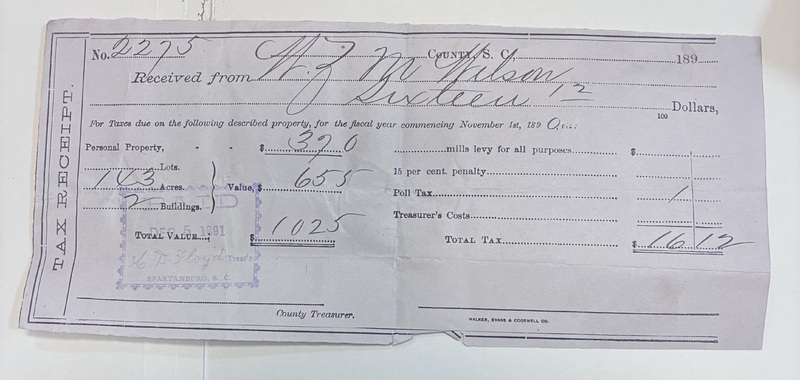 TAX RECEIPT.
No. 2275 COUNTY, S. C., 189
Received from W. Z. McWilson
Sixteen 12/100 Dollars,
For Taxes due on the following described property, for the fiscal year commencing November 1st, 1890,
Personal Property, - - $ 370
Lots.
143 Acres. Value, $ 655
2 Buildings.
TOTAL VALUE, $ 1025
DEC 5 1891
Floyd Treas'r
SPARTANBURG, S. C.
County Treasurer.
mills levy for all purposes $
15 per cent. penalty
Poll Tax 1
Treasurer's Costs
TOTAL TAX $ 16 12
WALKER, EVANS & COGSWELL CO.